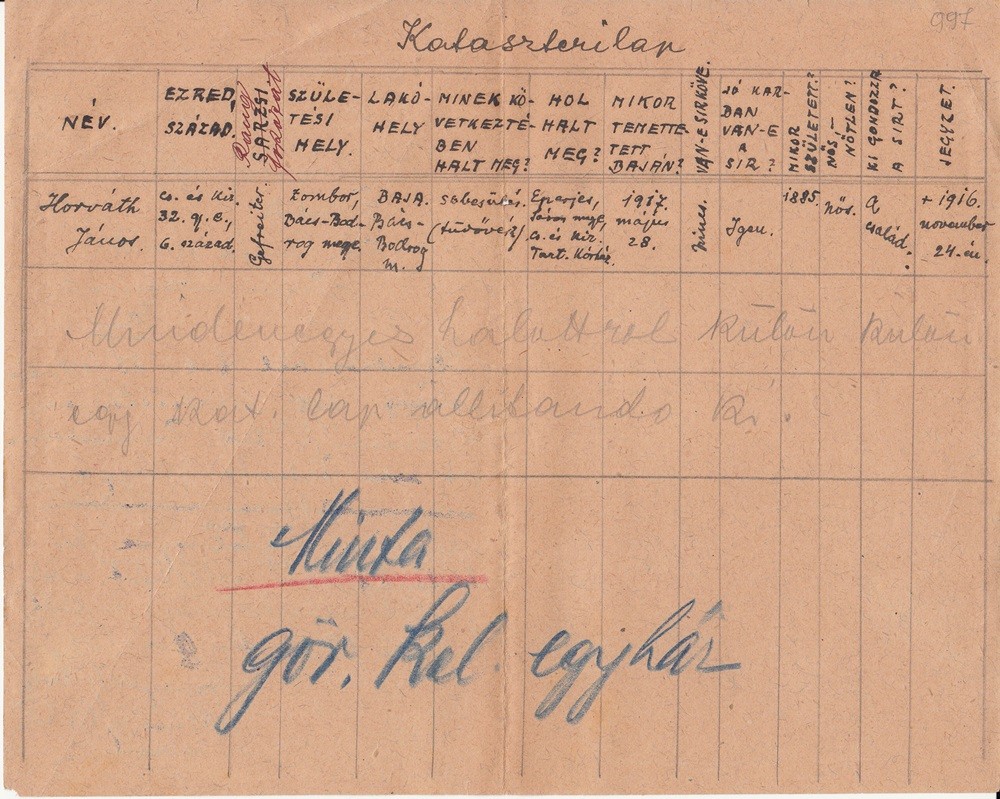 997
Kataszterilap
NÉV.
EZRED, SZÁZAD.
SARZSI
SZÜLE-
TÉSI
HELY.
LAKÓ-
HELY
MINEK KÖ-
VETKEZTÉ-
BEN
HALT MEG?
HOL
HALT
MEG?
MIKOR
TEMETTE-
TETT
BAJÁN?
VAN-E SIRKÖVE.
JÓ KAR-
BAN
VAN-E
A
SIR?
MIKOR
SZÜLETETT?
NÖS-
NÖTLEN?
KI GONDOZZA
A SIRT?
JEGYZET.
Horváth
János.
cs. és kir.
32. gy. e.,
6. század.
Gefreiter.
Zombor,
Bács-Bod-
rog megye.
BAJA.
Bács-
Bodrog
m.
sebesülés.
(tüdővész)
Eperjes,
Sáros megye,
cs. és kir.
Tart. Kórház.
1917.
május
28.
Nincs.
Igen.
1885.
Nös.
a
család.
+ 1916.
november
24-én.
Mindenegyes halottról külön külön
egy kat. lap állitandó ki.
Minta
gör. kel. egyház